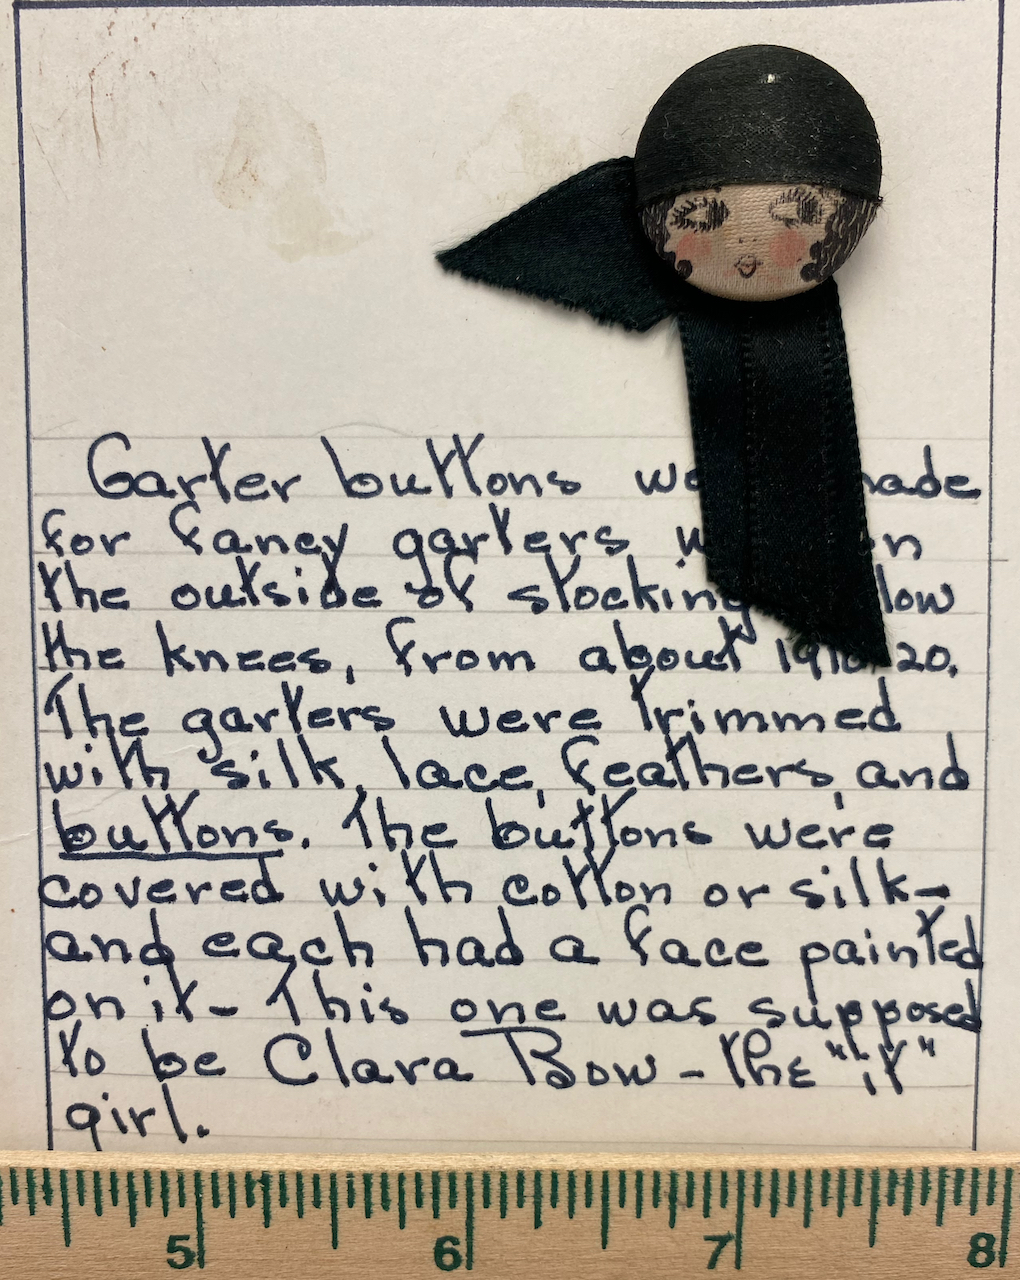 Garter buttons made
for fancy garters
the outside of stocking
the knees, from about 20.
The garters were trimmed
with silk, lace, feathers, and
buttons. The buttons were
covered with cotton or silk-
and each had a face painted
on it - This one was supposed
to be Clara Bow - the "it"
girl.
5 6 7 8